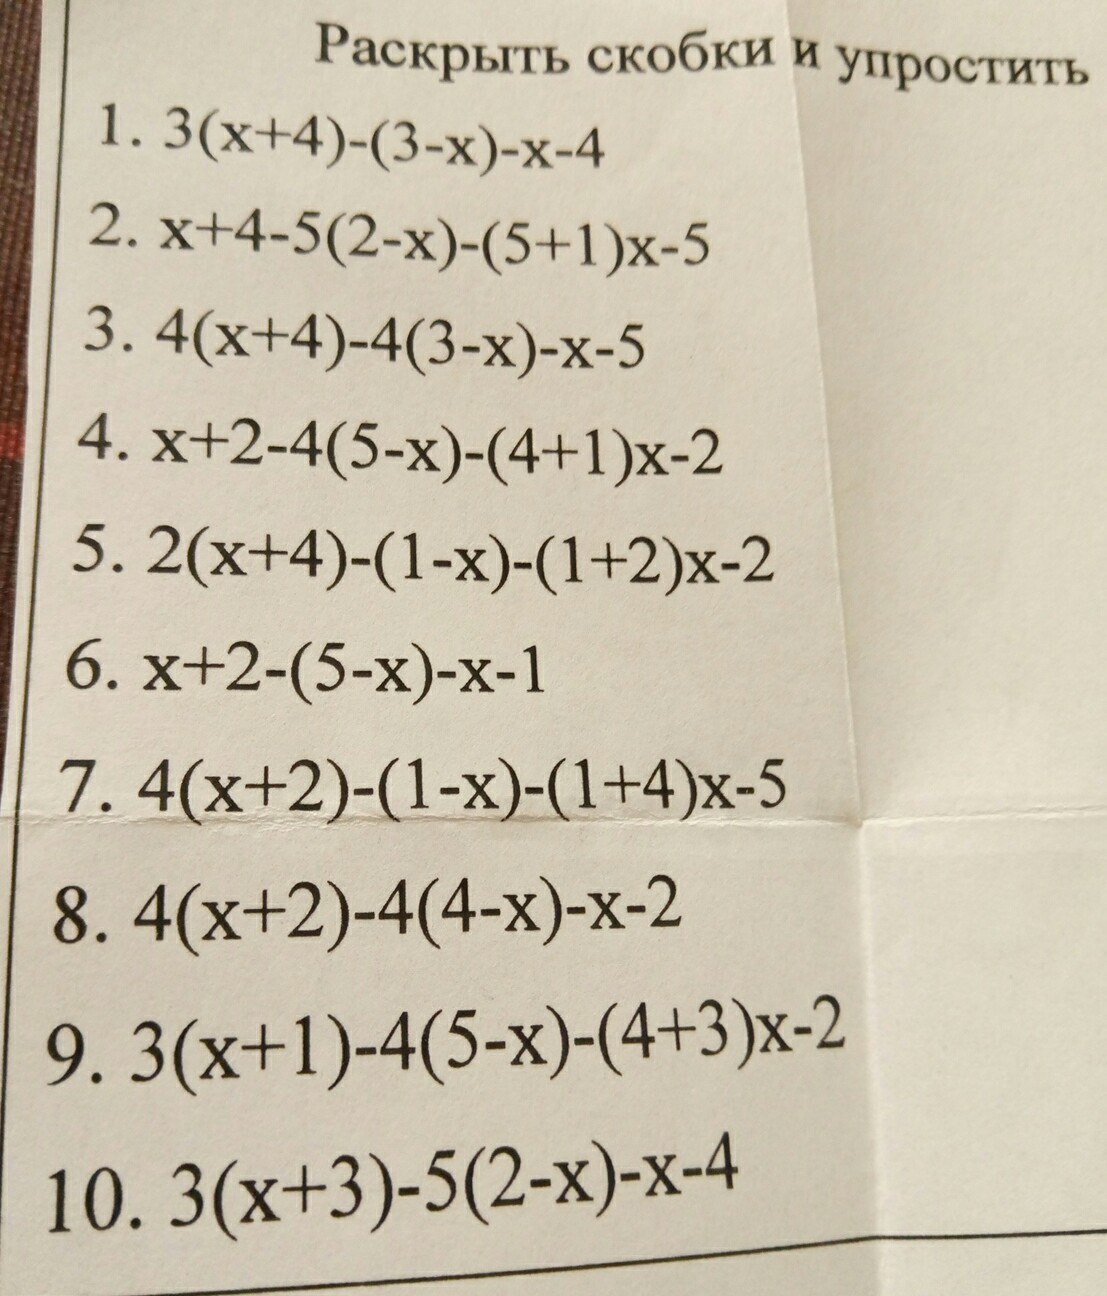 Раскрыть скобки и упростить
1. 3(x+4)-(3-x)-x-4
2. x+4-5(2-x)-(5+1)x-5
3. 4(x+4)-4(3-x)-x-5
4. x+2-4(5-x)-(4+1)x-2
5. 2(x+4)-(1-x)-(1+2)x-2
6. x+2-(5-x)-x-1
7. 4(x+2)-(1-x)-(1+4)x-5
8. 4(x+2)-4(4-x)-x-2
9. 3(x+1)-4(5-x)-(4+3)x-2
10. 3(x+3)-5(2-x)-x-4